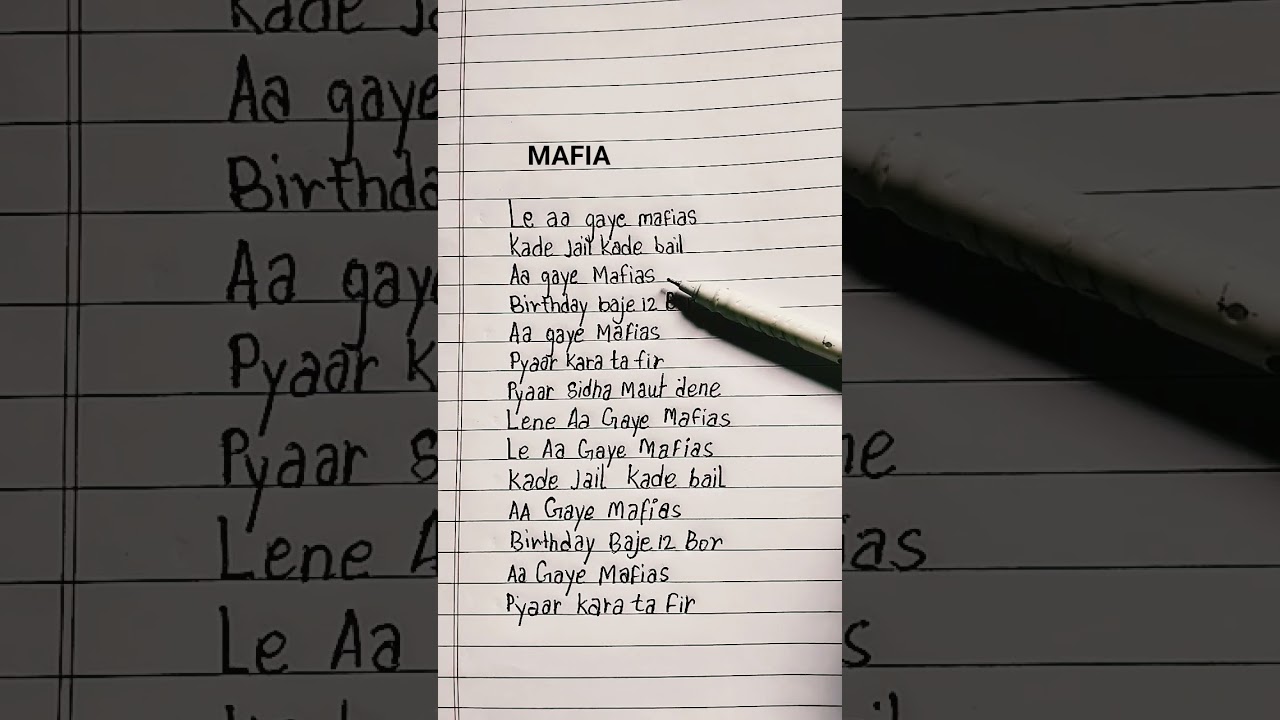 MAFIA
Le aa gaye mafias
Kade Jail Kade bail
Aa gaye Mafias
Birthday baje 12
Aa gaye Mafias
Pyaar Kara ta fir
Pyaar Sidha Maut dene
Lene Aa Gaye Mafias
Le Aa Gaye Mafias
Kade Jail Kade bail
AA Gaye Mafias
Birthday Baje 12 Bor
Aa Gaye Mafias
Pyaar Kara ta Fir